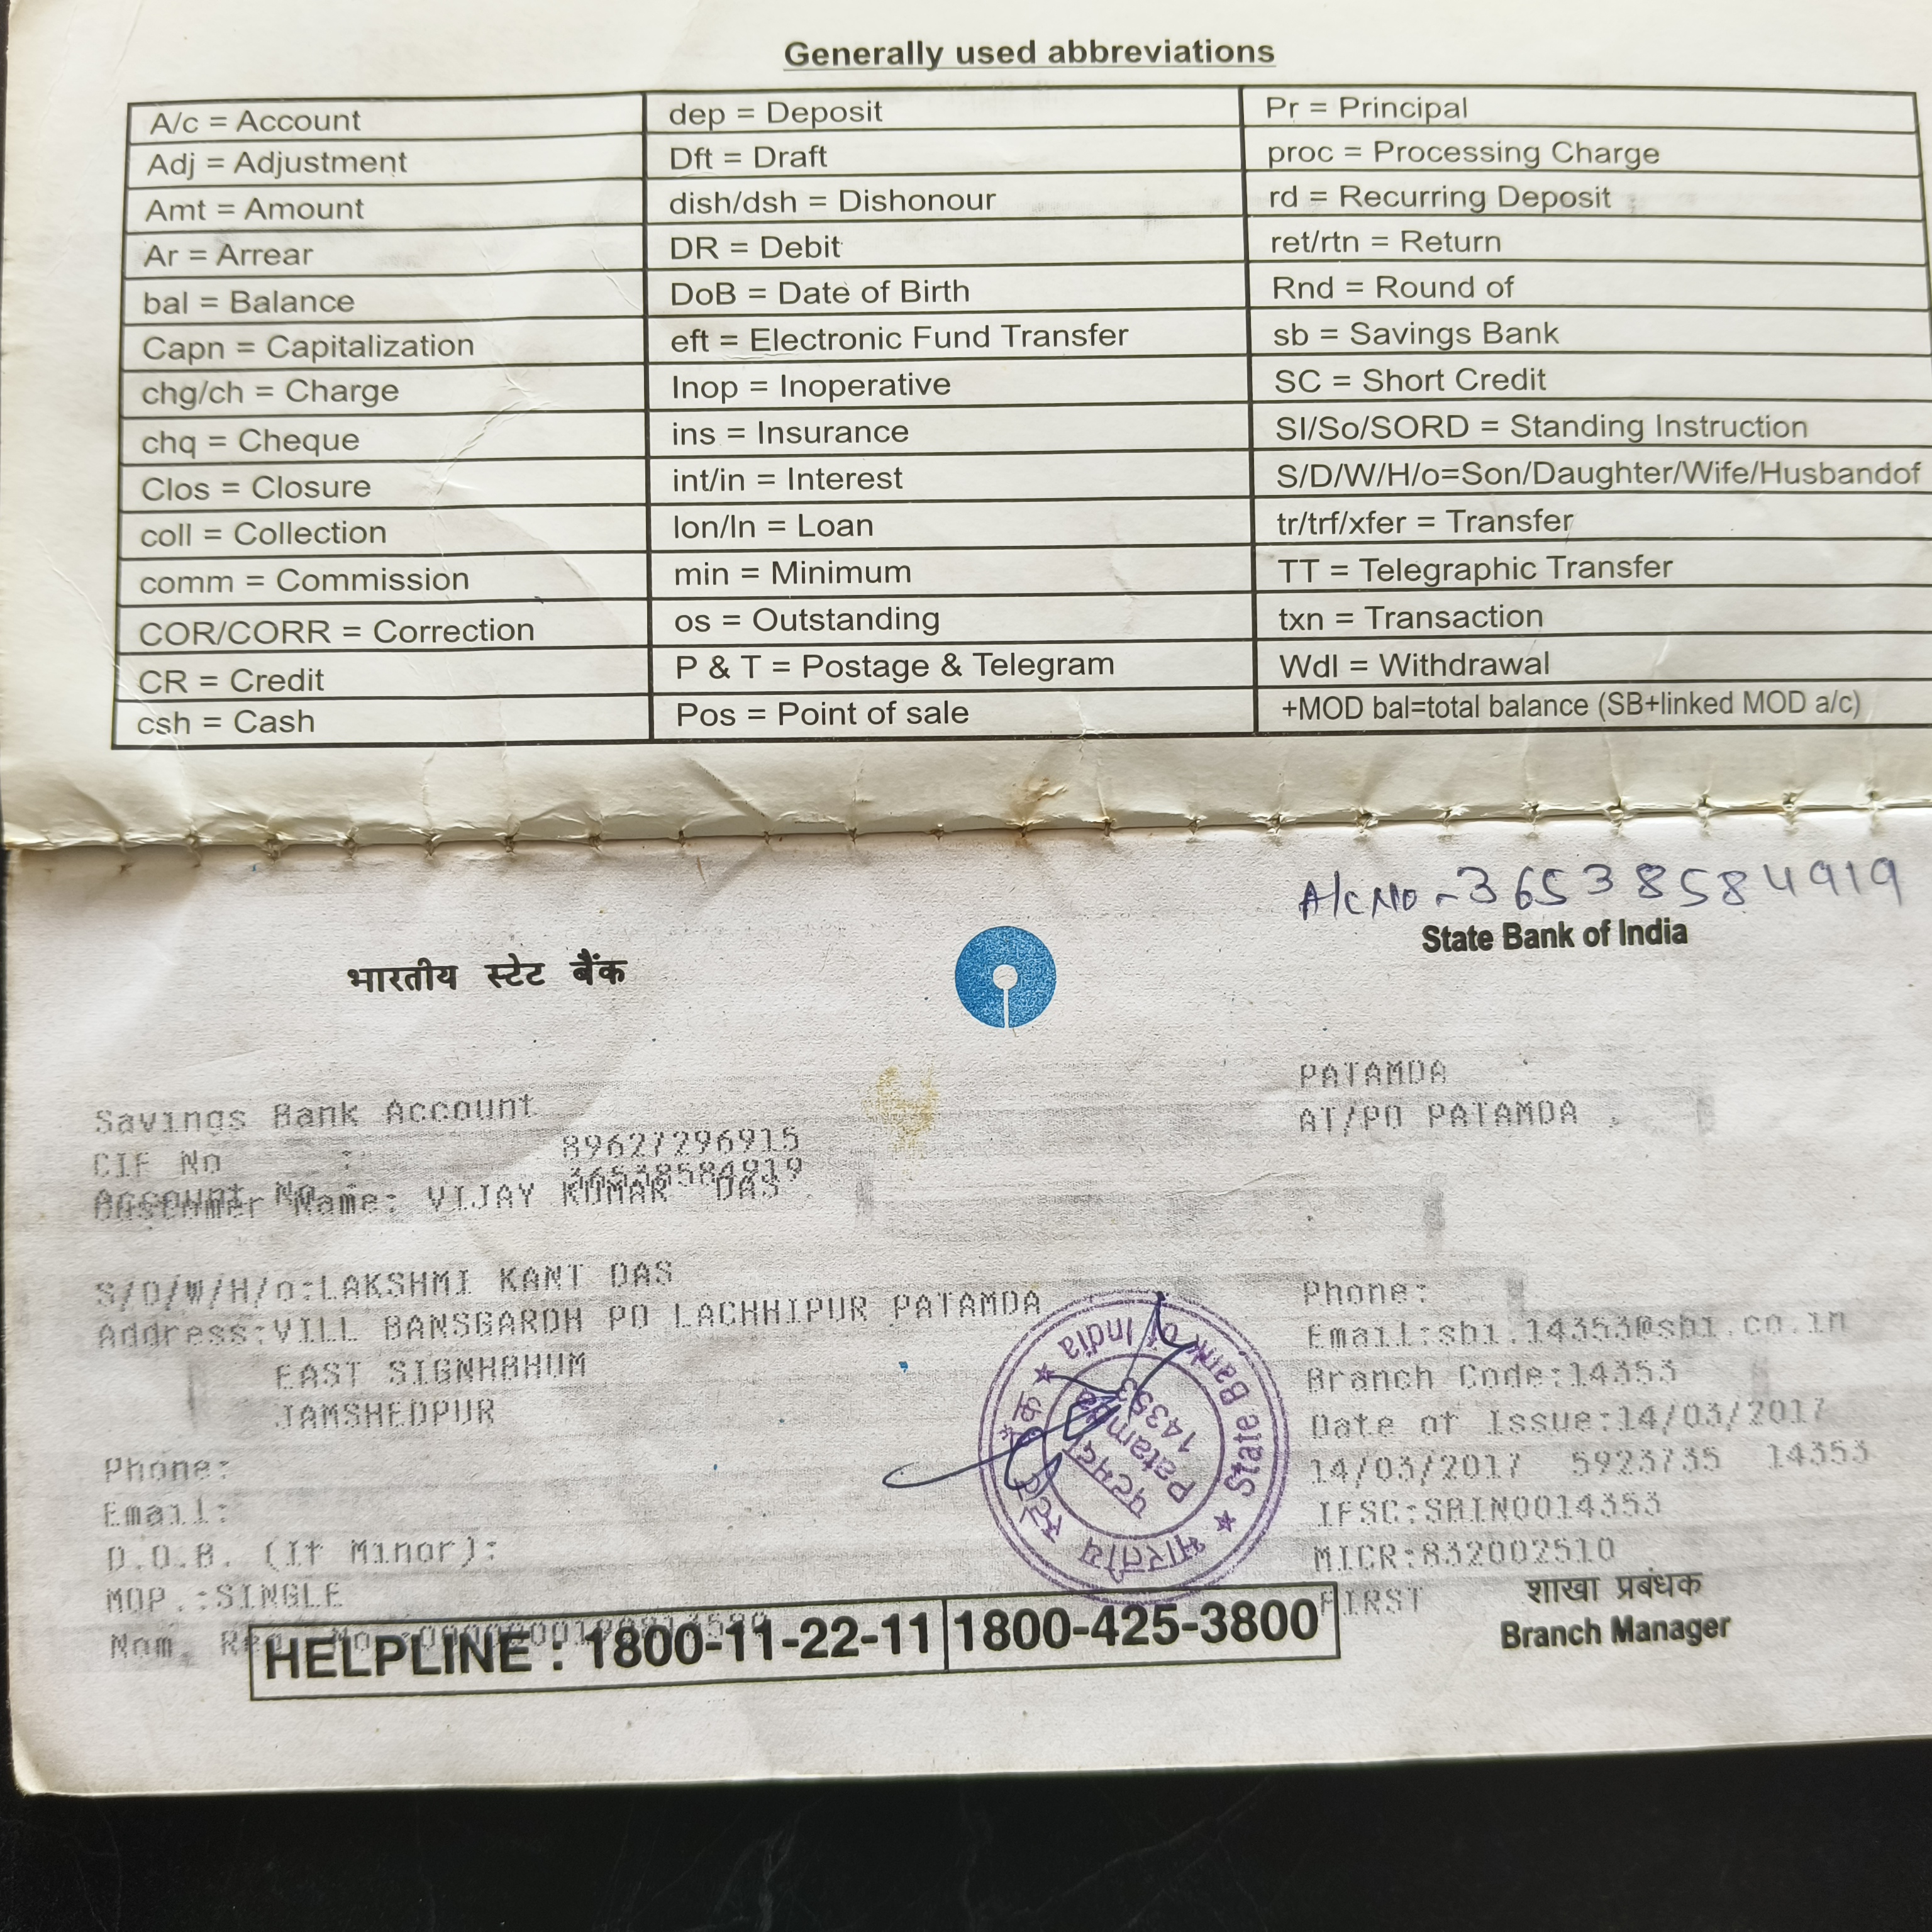 Generally used abbreviations
A/c = Account
Adj = Adjustment
Amt = Amount
Ar = Arrear
bal = Balance
Capn = Capitalization
chg/ch = Charge
chq = Cheque
Clos = Closure
coll = Collection
comm = Commission
COR/CORR = Correction
CR = Credit
csh = Cash
dep = Deposit
Dft = Draft
dish/dsh = Dishonour
DR = Debit
DoB = Date of Birth
eft = Electronic Fund Transfer
Inop = Inoperative
ins = Insurance
int/in = Interest
lon/ln = Loan
min = Minimum
os = Outstanding
P & T = Postage & Telegram
Pos = Point of sale
Pr = Principal
proc = Processing Charge
rd = Recurring Deposit
ret/rtn = Return
Rnd = Round of
sb = Savings Bank
SC = Short Credit
SI/So/SORD = Standing Instruction
S/D/W/H/o=Son/Daughter/Wife/Husbandof
tr/trf/xfer = Transfer
TT = Telegraphic Transfer
txn = Transaction
Wdl = Withdrawal
+MOD bal=total balance (SB+linked MOD a/c)
A/c No - 36538584919
भारतीय स्टेट बैंक
State Bank of India
Savings Bank Account
CIF No : 89627296915
Account No : 36538584919
Customer Name: VIJAY KUMAR DAS
S/D/W/H/o:LAKSHMI KANT DAS
Address:VILL BANSGARDH PO LACHHIPUR PATAMDA
EAST SIGNHBHUM
JAMSHEDPUR
Phone:
Email:
D.O.B. (If Minor):
MOP.:SINGLE
Nom. Reg. No.:
PATAMDA
AT/PO PATAMDA
Phone:
Email:sbi.14353@sbi.co.in
Branch Code:14353
Date of Issue:14/03/2017
14/03/2017 5923735 14353
IFSC:SBIN0014353
MICR:832002510
FIRST
शाखा प्रबंधक
Branch Manager
भारतीय स्टेट बैंक
State Bank of India
पटमदा
Patamda
14353
HELPLINE : 1800-11-22-11 1800-425-3800